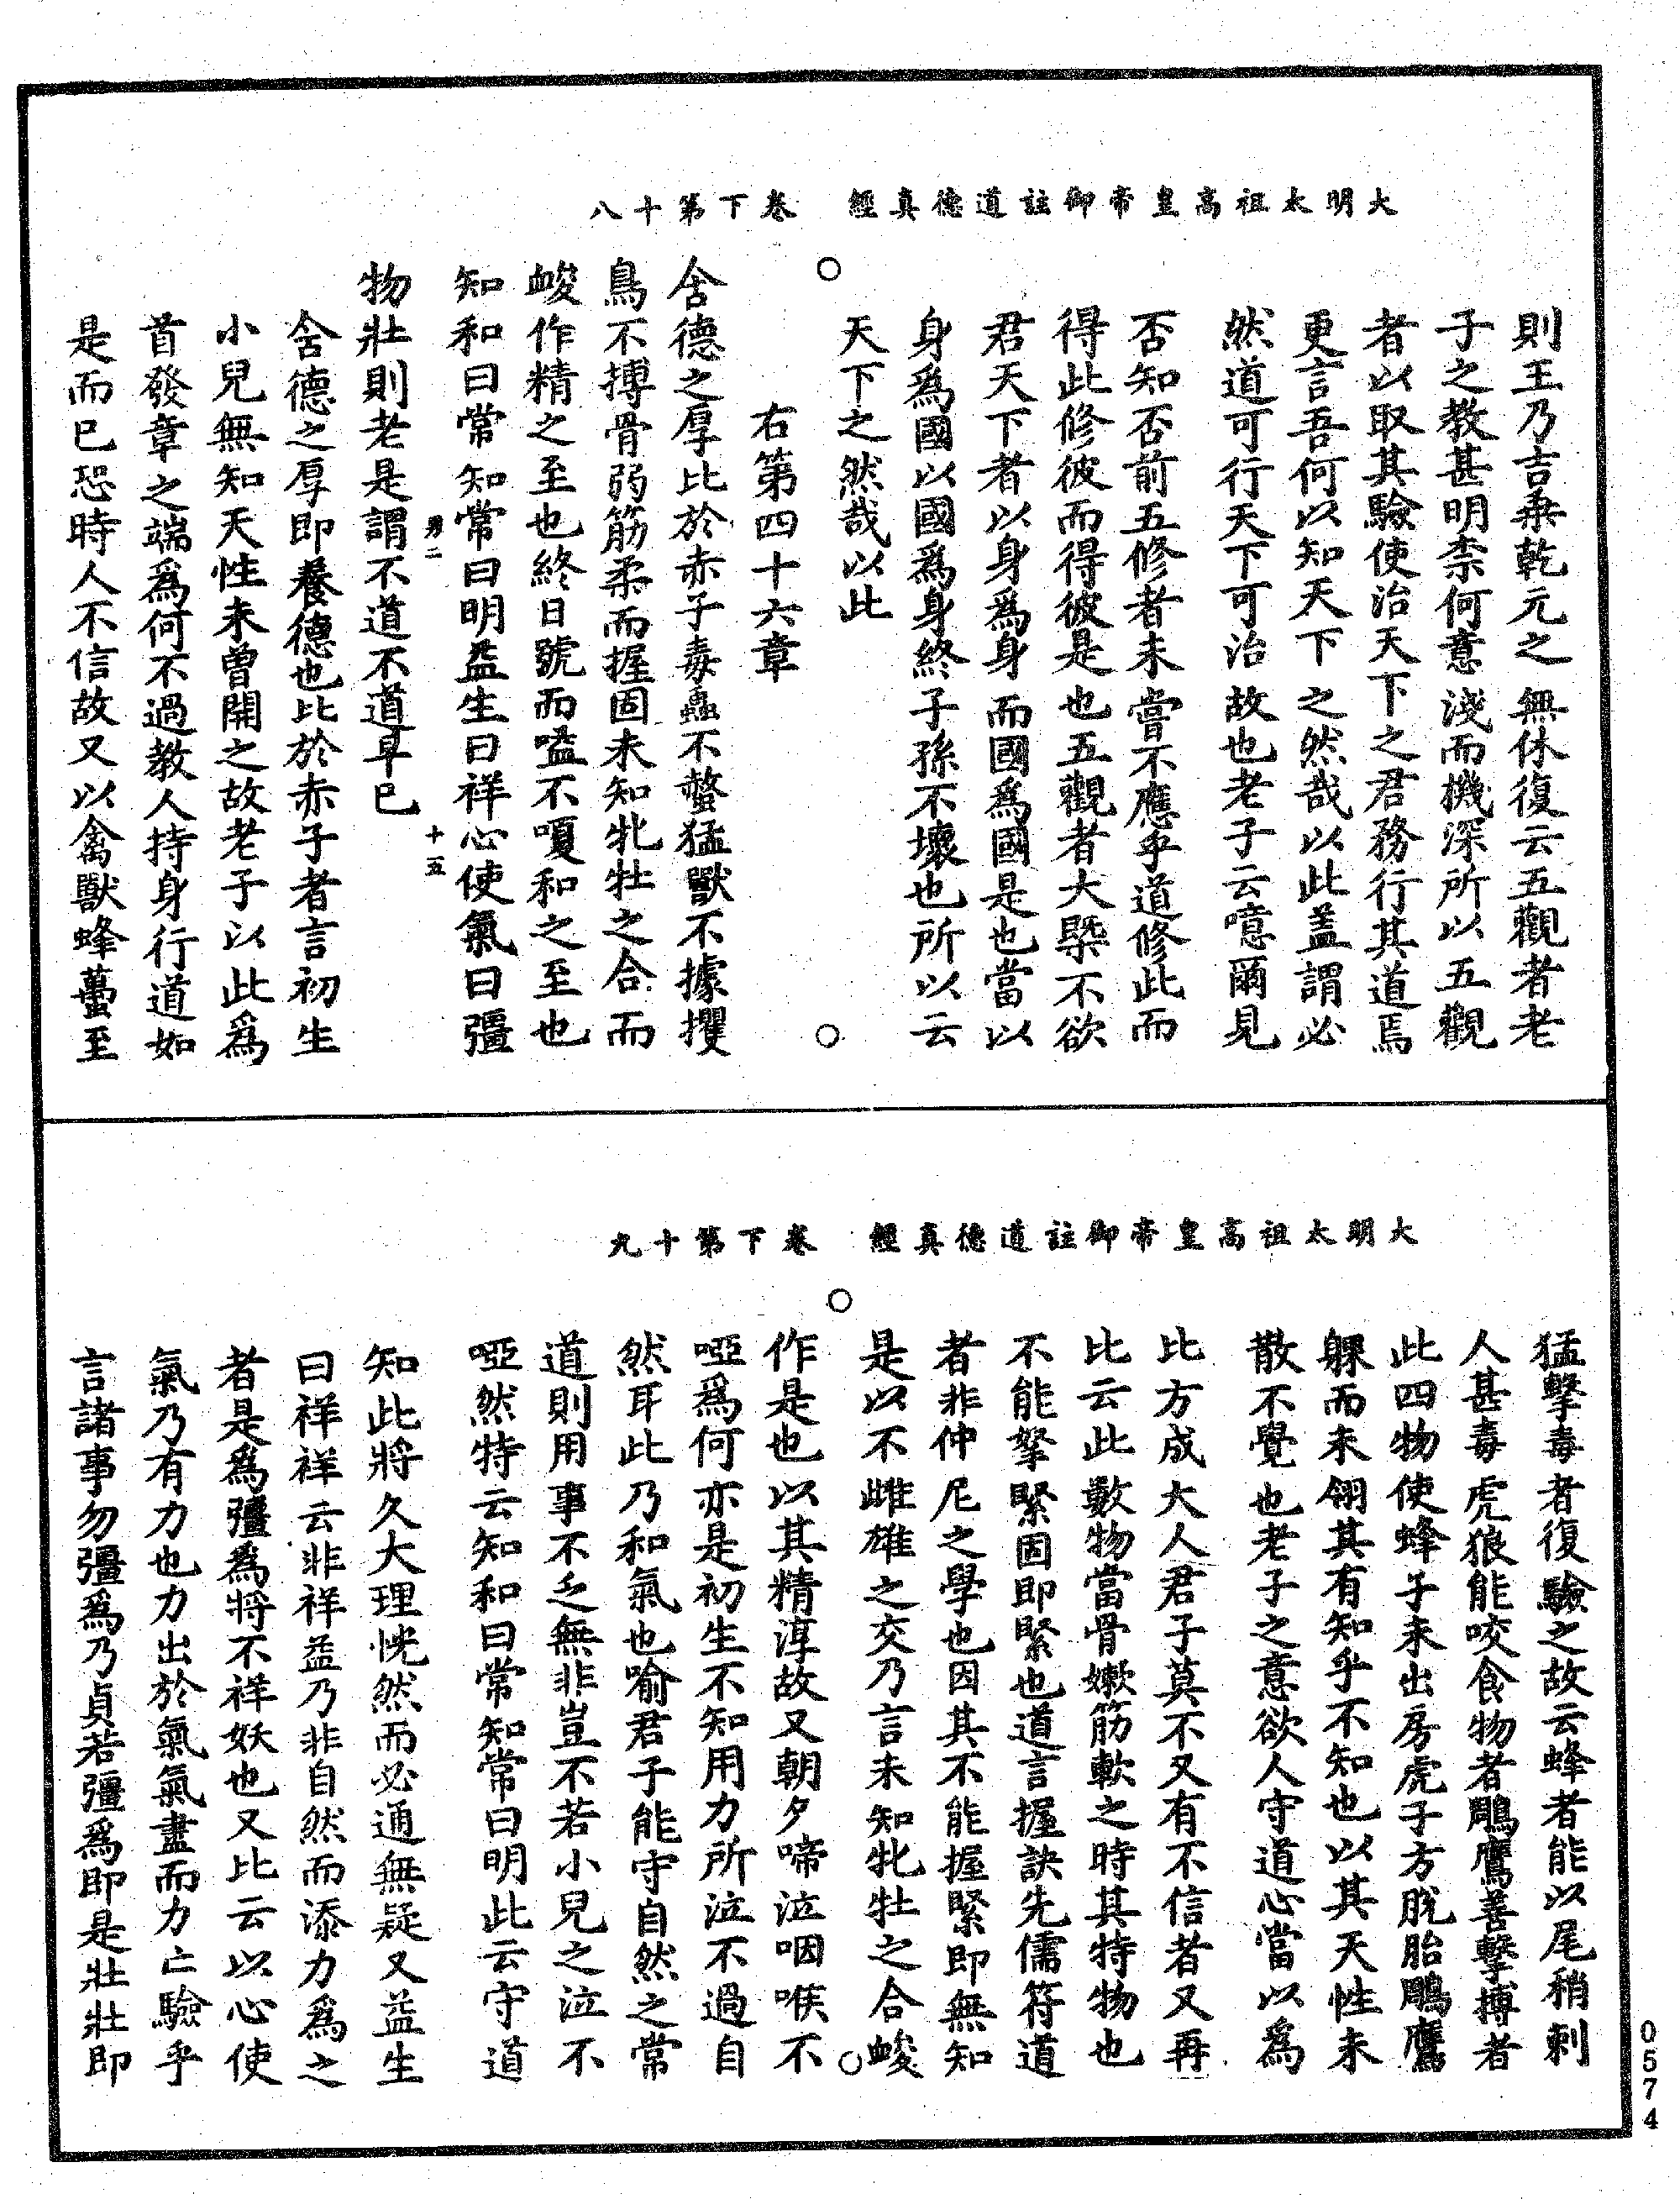 大明太祖高皇帝御註道德真經　卷下第十八
則王乃吉乘乾元之無休復云五觀者老
子之教甚明柰何意淺而機深所以五觀
者以取其驗使治天下之君務行其道焉
更言吾何以知天下之然哉以此盖謂必
然道可行天下可治故也老子云噫爾見
否知否前五修者未嘗不應乎道修此而
得此修彼而得彼是也五觀者大槩不欲
君天下者以身爲身而國爲國是也當以
身爲國以國爲身終子孫不壞也所以云
天下之然哉以此
右第四十六章
含德之厚比於赤子毒蟲不螫猛獸不據攫
鳥不搏骨弱筋柔而握固未知牝牡之合而
峻作精之至也終日號而嗌不嗄和之至也
知和曰常知常曰明益生曰祥心使氣曰彊
男二　十五
物壯則老是謂不道不道早已
含德之厚即養德也比於赤子者言初生
小兒無知天性未曾開之故老子以此爲
首發章之端爲何不過教人持身行道如
是而已恐時人不信故又以禽獸蜂蠆至
大明太祖高皇帝御註道德真經　卷下第十九
猛擊毒者復驗之故云蜂者能以尾稍刺
人甚毒虎狼能咬食物者鵰鷹善擊搏者
此四物使蜂子未出房虎子方脫胎鵰鷹
躶而未翎其有知乎不知也以其天性未
散不覺也老子之意欲人守道心當以爲
比方成大人君子莫不又有不信者又再
比云此數物當骨嫩筋軟之時其特物也
不能拏緊固即緊也道言握訣先儒符道
者非仲尼之學也因其不能握緊即無知
是以不雌雄之交乃言未知牝牡之合峻
作是也以其精淳故又朝夕啼泣咽喉不
啞爲何亦是初生不知用力所泣不過自
然耳此乃和氣也喻君子能守自然之常
道則用事不乏無非豈不若小兒之泣不
啞然特云知和曰常知常曰明此云守道
知此將久大理恍然而必通無疑又益生
曰祥祥云非祥益乃非自然而添力爲之
者是爲彊爲將不祥妖也又比云以心使
氣乃有力也力出於氣氣盡而力亡驗乎
言諸事勿彊爲乃貞若彊爲即是壯壯即
0574